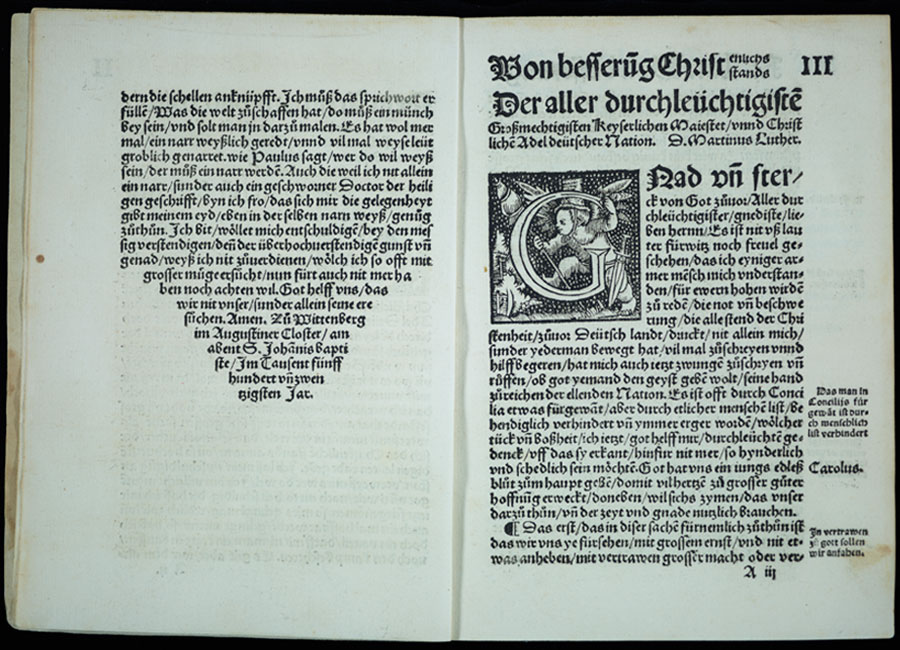 dern die schellen anknüpfft. Ich můß das sprichwort er
füllē/Was die welt zůschaffen hat/do můß ein münch
bey sein/vnd solt man in darzů malen. Es hat wol mer
mal/ein narr weyßlich geredt/vnnd vil mal weyse leüt
groblich genarret. wie Paulus sagt/wer do wil weyß
sein/der můß ein narr werdē. Auch die weil ich nit allein
ein narr/sunder auch ein geschworner Doctor der heili
gen geschrifft/byn ich fro/das sich mir die gelegenheyt
gibt meinem eyd/eben in der selben narn weyß/genůg
zůthůn. Ich bit/wöllet mich entschuldigē/bey den mes
sig verstendigen/deñ der überhochuerstendigē gunst vñ
genad/weyß ich nit zůuerdienen/wölch ich so offt mit
grosser müge ersücht/nun fürt auch nit mer ha
ben noch achten wil. Got helff vns/das
wir nit vnser/sunder allein seine ere
sůchen. Amen. Zů Wittenberg
im Augustiner Closter/am
abent S. Johānis bapti
ste/Im Tausent fünff
hundert vñ zwen
tzigsten Jar.
Von besserūg Christ enlichs stands III
Der aller durchleüchtigistē
Großmechtigisten Keyserlichen Maiestet/vnnd Christ
lichē Adel deütscher Nation. D. Martinus Luther.
GNad vñ ster/
ck von Got zůuor/Aller dur
chleüchtigister/gnediste/lie-
ben herrn/Es ist nit vß lau
ter fürwitz noch freuel ge-
schehen/das ich eyniger ar-
mer mēsch mich vnderstan-
den/für ewern hohen wirdē
zů redē/die not vñ beschwe
rung/die alle stend der Chri
stenheit/zůuor Deütsch landt/druckt/nit allein mich/
sunder yederman bewegt hat/vil mal zůschreyen vnnd
hilff begeren/hat mich auch ietzt zwungē zůschryen vñ
růffen/ob got yemand den geyst gebē wolt/seine hand
zů reichen der ellenden Nation. Es ist offt durch Conci
lia etwas fürgewāt/aber durch etlicher menschē list/be
hendiglich verhindert vñ ymmer erger wordē/wölcher
tück vñ boßheit/ich ietzt/got helff mir/durchleüchtē ge-
denck/vff das sy erkant/hinfür nit mer/so hynderlich
vnd schedlich sein möchtē. Got hat vns ein iungs edleß
blůt zům haupt gebē/domit vil hertzē zů grosser gůter
hoffnūg erweckt/doneben/wil sichs zymen/das vnser
darzů thůn/vñ der zeyt vnd gnade nutzlich brauchen.
¶ Das erst/das in diser sachē fürnemlich zůthůn ist
das wir vns ye fürsehen/mit grossem ernst/vnd nit et-
was anheben/mit vertrawen grosser macht oder ver-
A iij
Das man in
Concilijs für
gewāt ist dur-
ch menschlich
list verhindert
Carolus.
In vertrawen
zů gott sollen
wir anfahen.